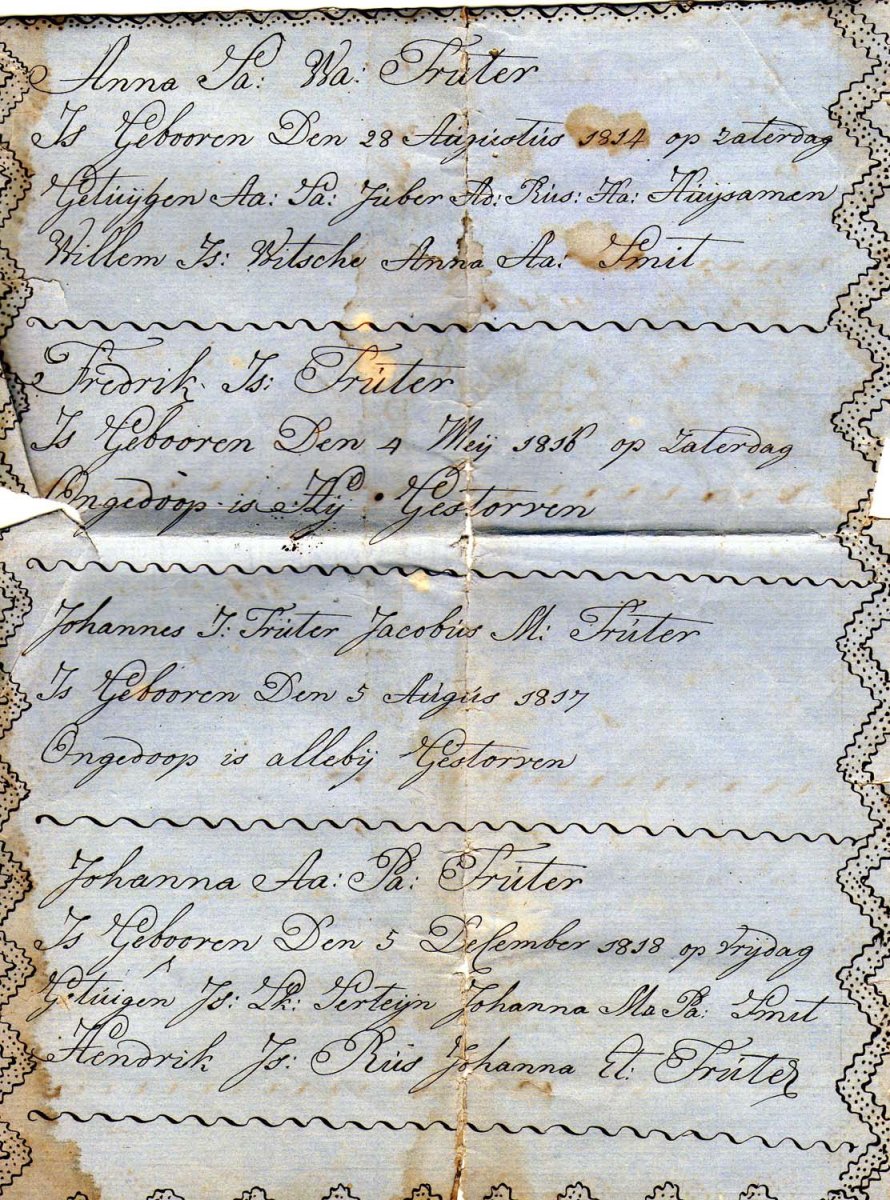 Anna Sa: Wa: Trúter
Is Gebooren Den 28 Augústús 1814 op Zaterdag
Getuygen Aa: Sa: Júber Ad: Rús: Ha: Húysamen
Willem Is: Witsche Anna Aa: Smit
Fredrik Is: Trúter
Is Gebooren Den 4 Meij 1816 op Zaterdag
Ongedoop is Hij Gestorven
Johannes I: Trúter Jacobús M: Trúter
Is Gebooren Den 5 Augús 1817
Ongedoop is allebij Gestorven
Johanna Aa: Pa: Trúter
Is Gebooren Den 5 December 1818 op Vrijdag
Getúigen Is: Lk: Serteijn Johanna Ma Pa: Smit
Hendrik Is: Rús Johanna Et: Trúter